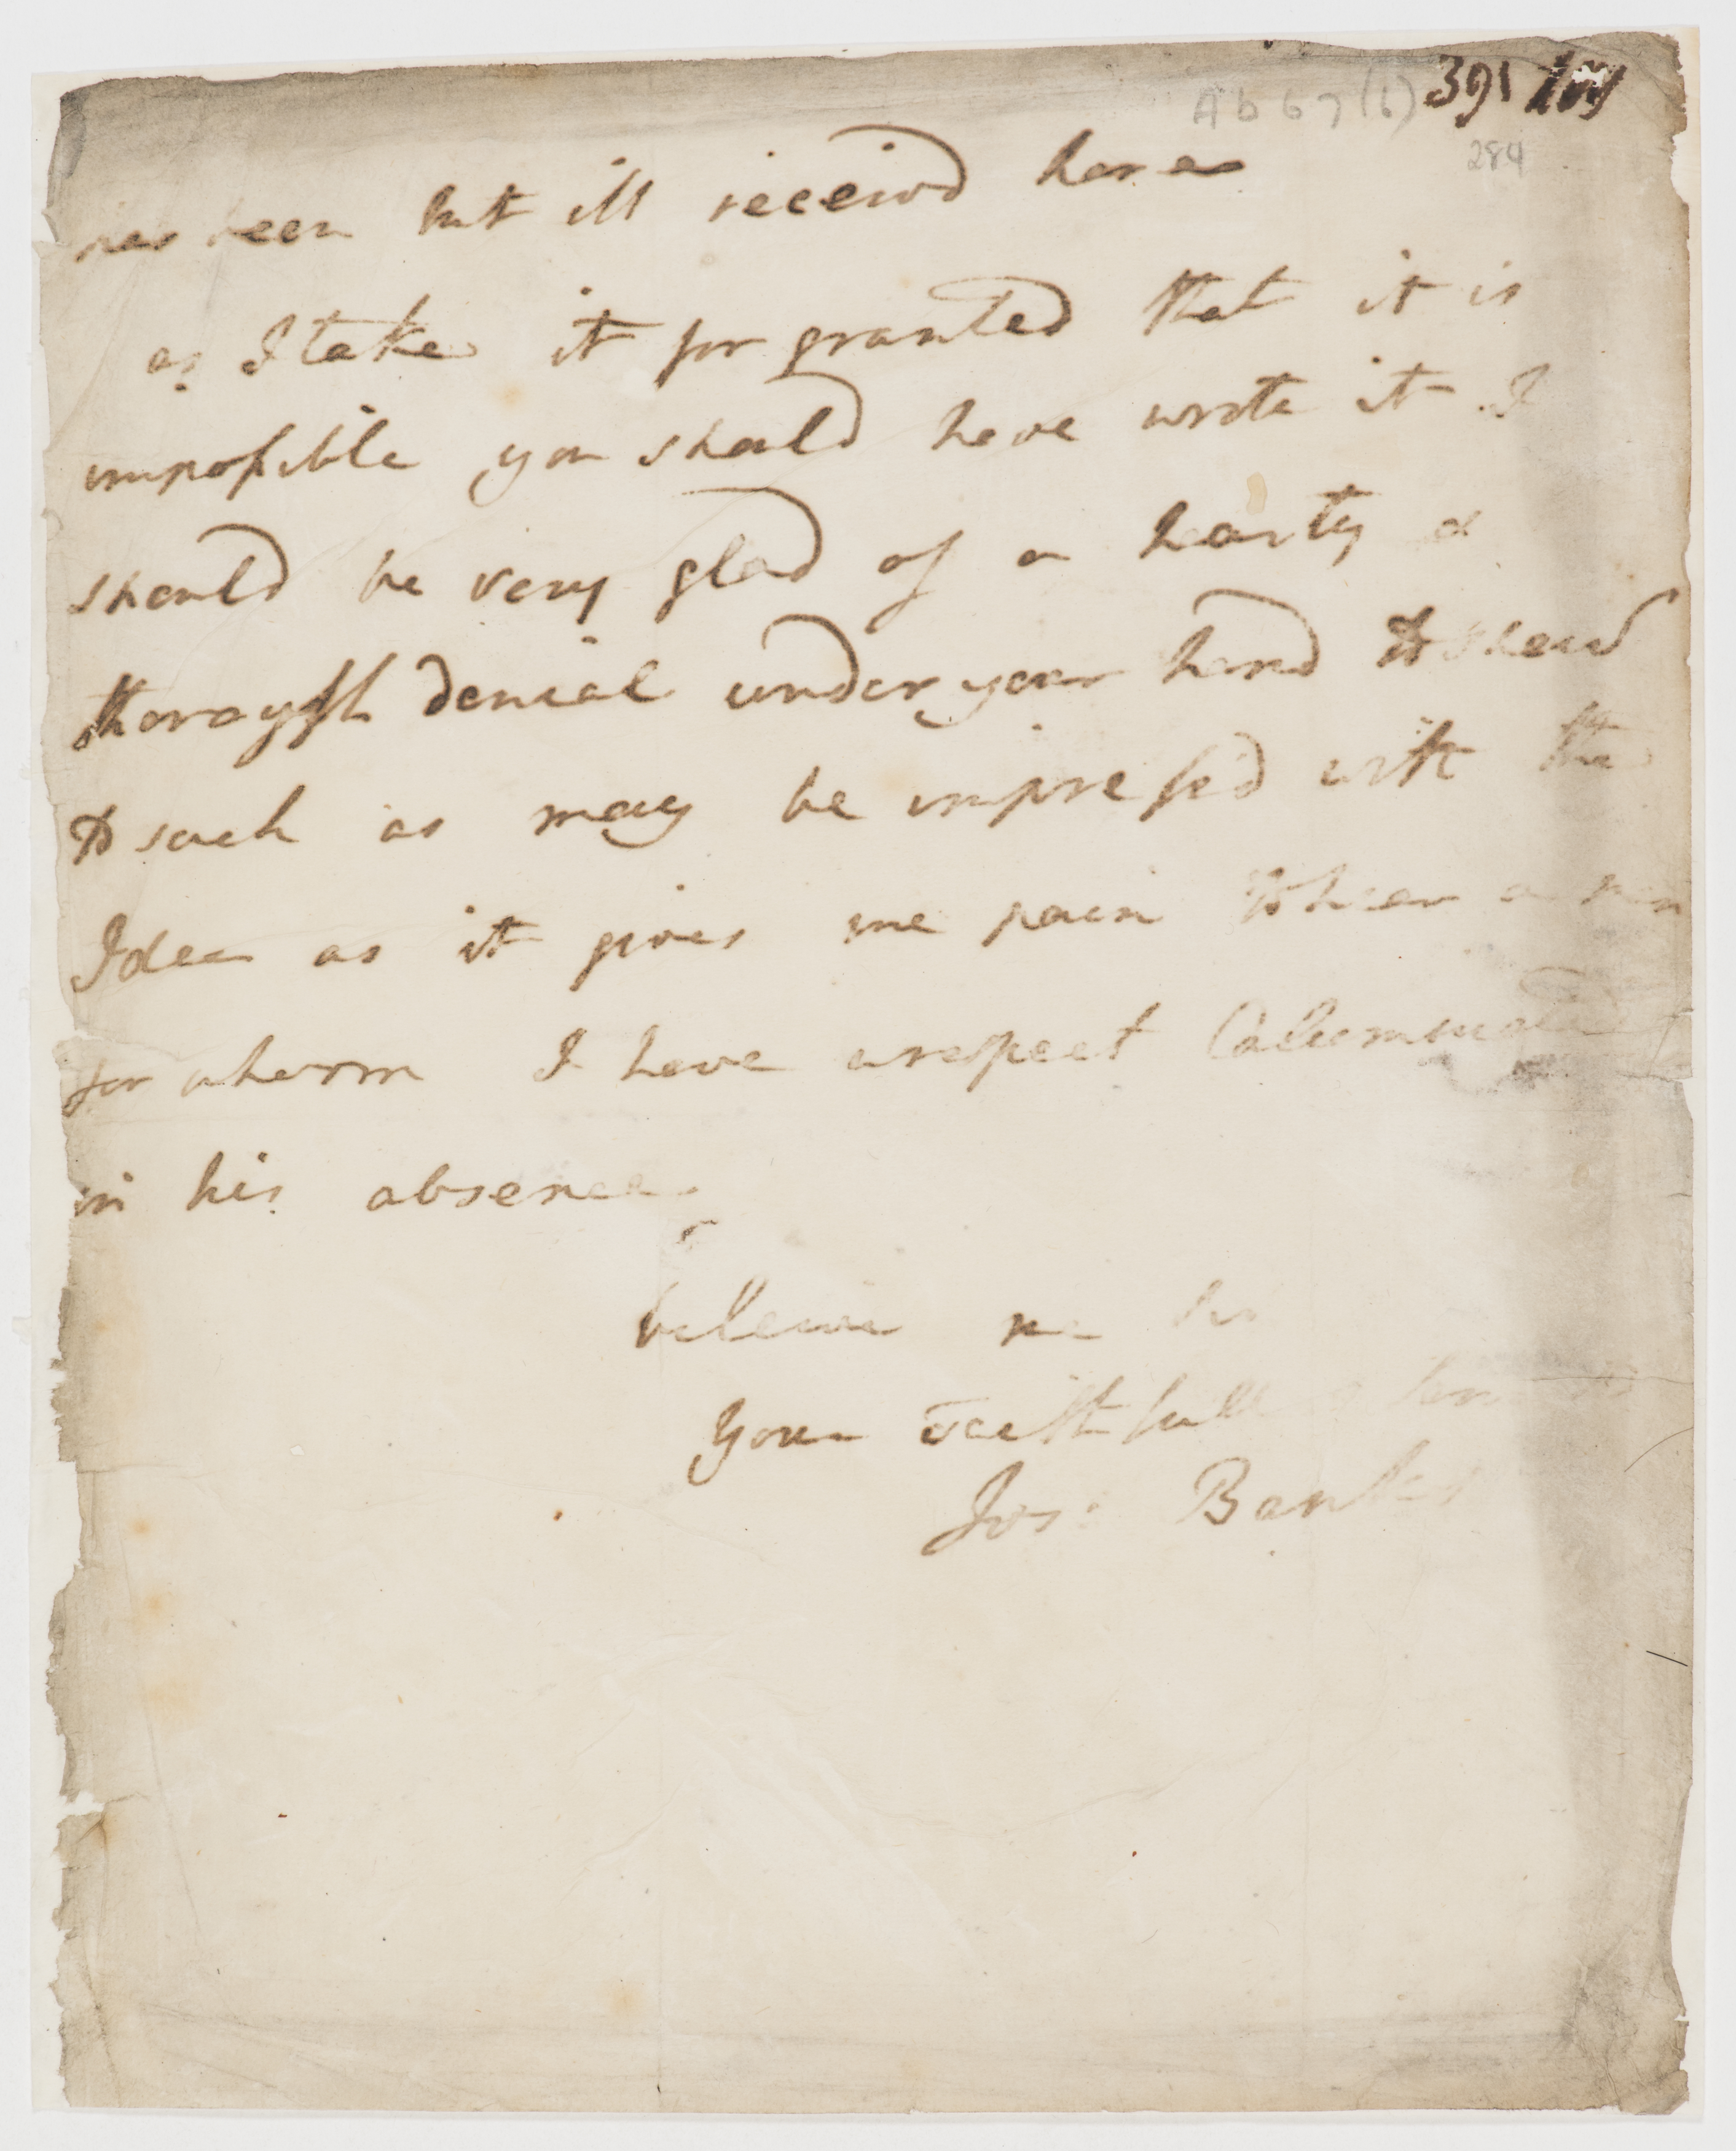 Ab 67 (6) 391
284
has been but ill receivd here
as I take it for granted that it is
impossible you should have wrote it I
should be very glad of a hearty &
thorough denial under your hand to shew
to such as may be impress'd with the
Idea as it gives me pain to hear a man
for whom I have a respect Calumniated
in his absence
beleive me
Your Faithfull
Jos: Banks